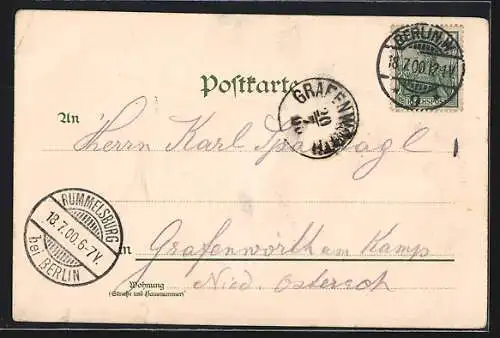 BERLIN. N.
18.7.00.12-1V.
Postkarte
GRAFENWÖRTH
An
Herrn Karl
RUMMELSBURG
18.7.00.6-7V.
bei BERLIN
in Grafenwörth am Kamp
Nied. Österech
Wohnung
(Straße und Hausnummer)